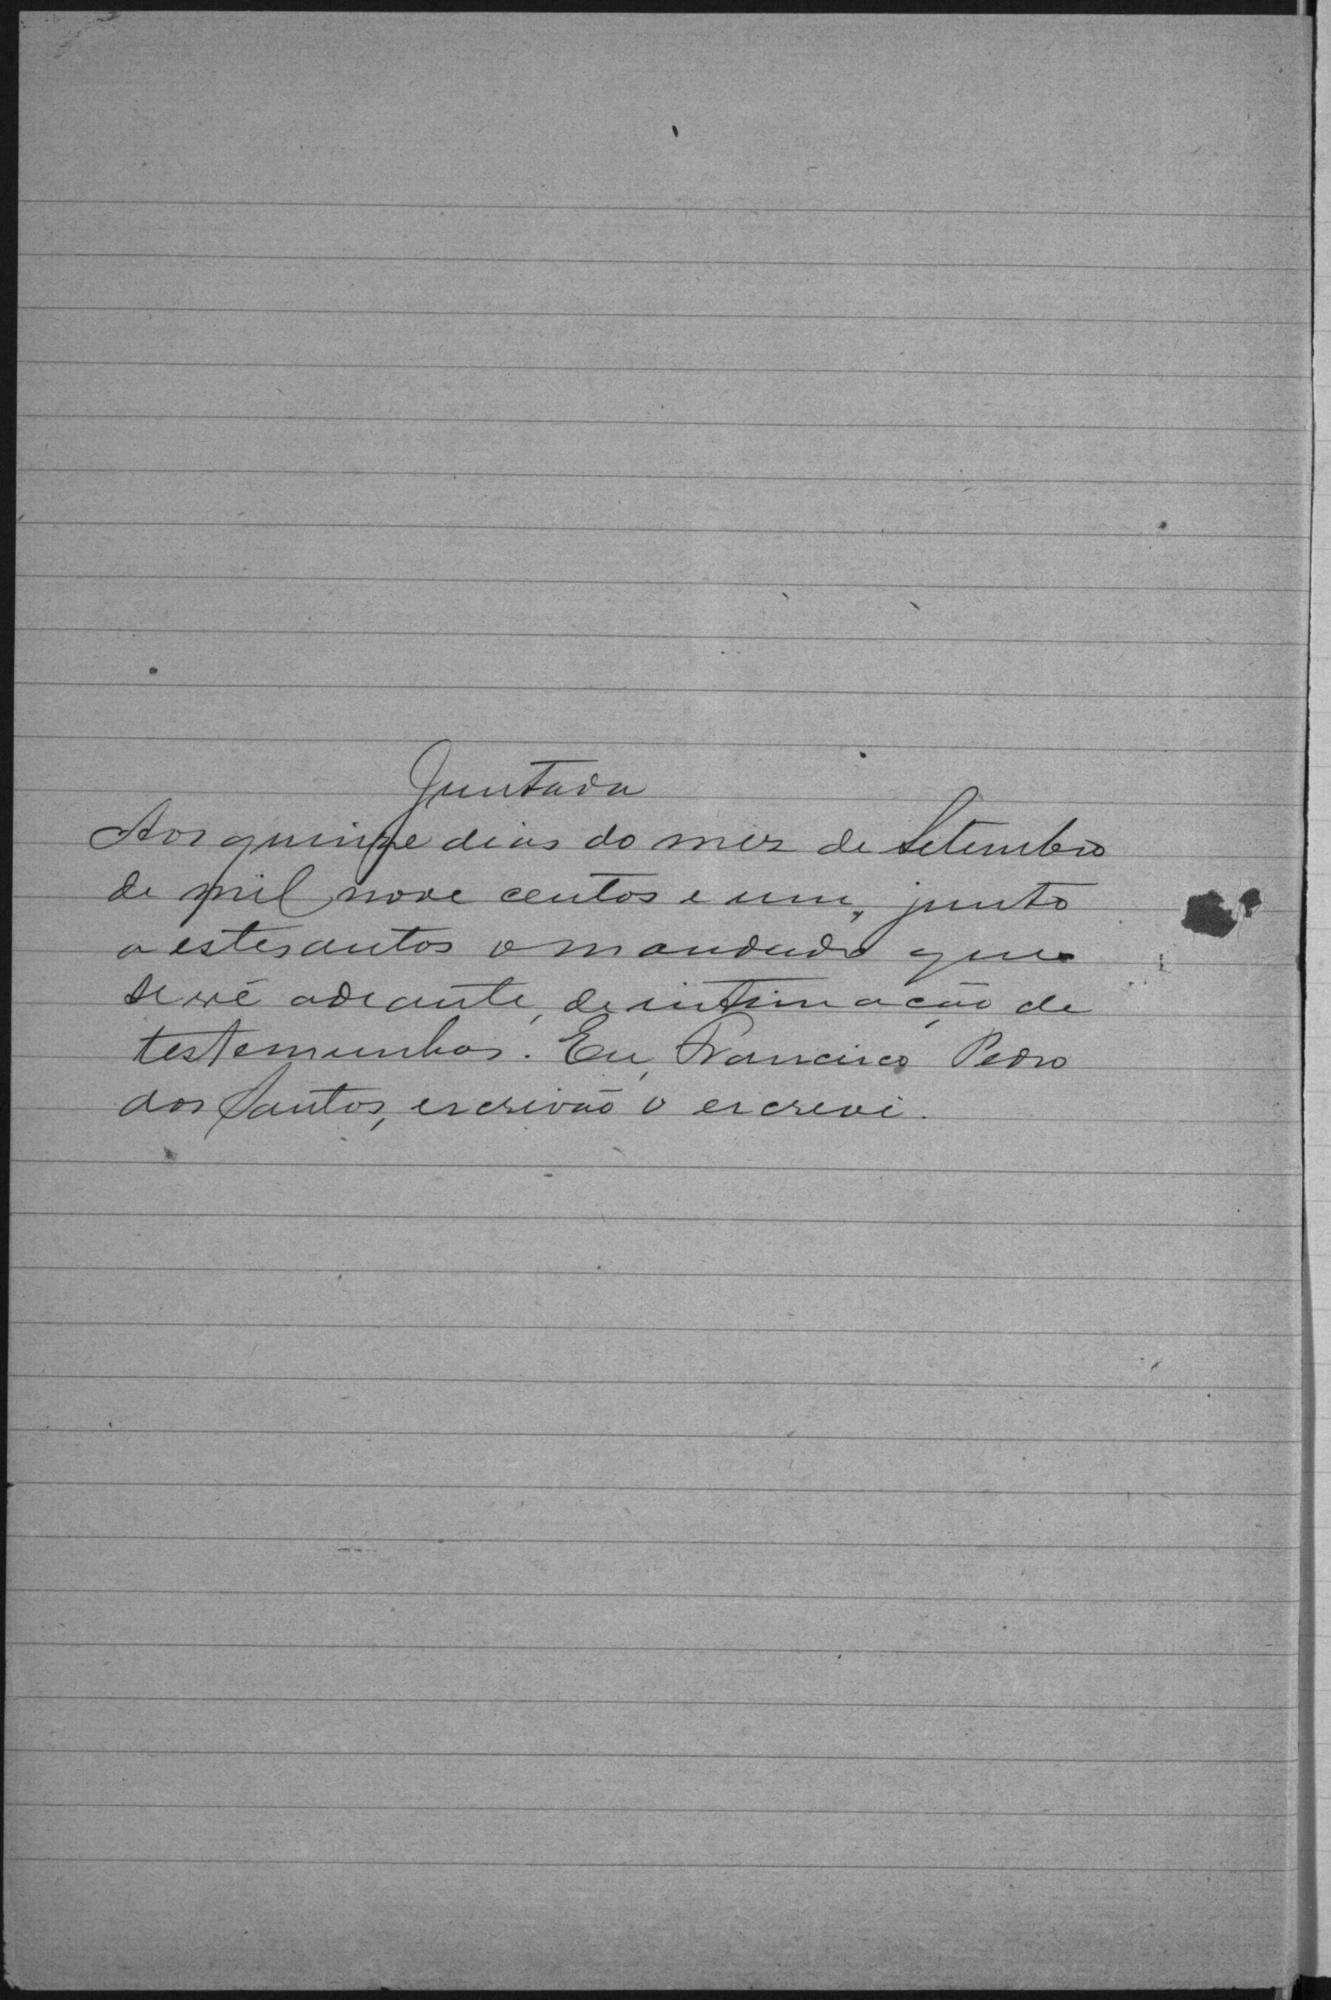 Juntada
Aos quinze dias do mez de Setembro
de mil nove centos e um, junto
a estes autos o mandado que
se vê adeante, de intimação de
testemunhas. Eu, Francisco Pedro
dos Santos, escrivão o escrevi.